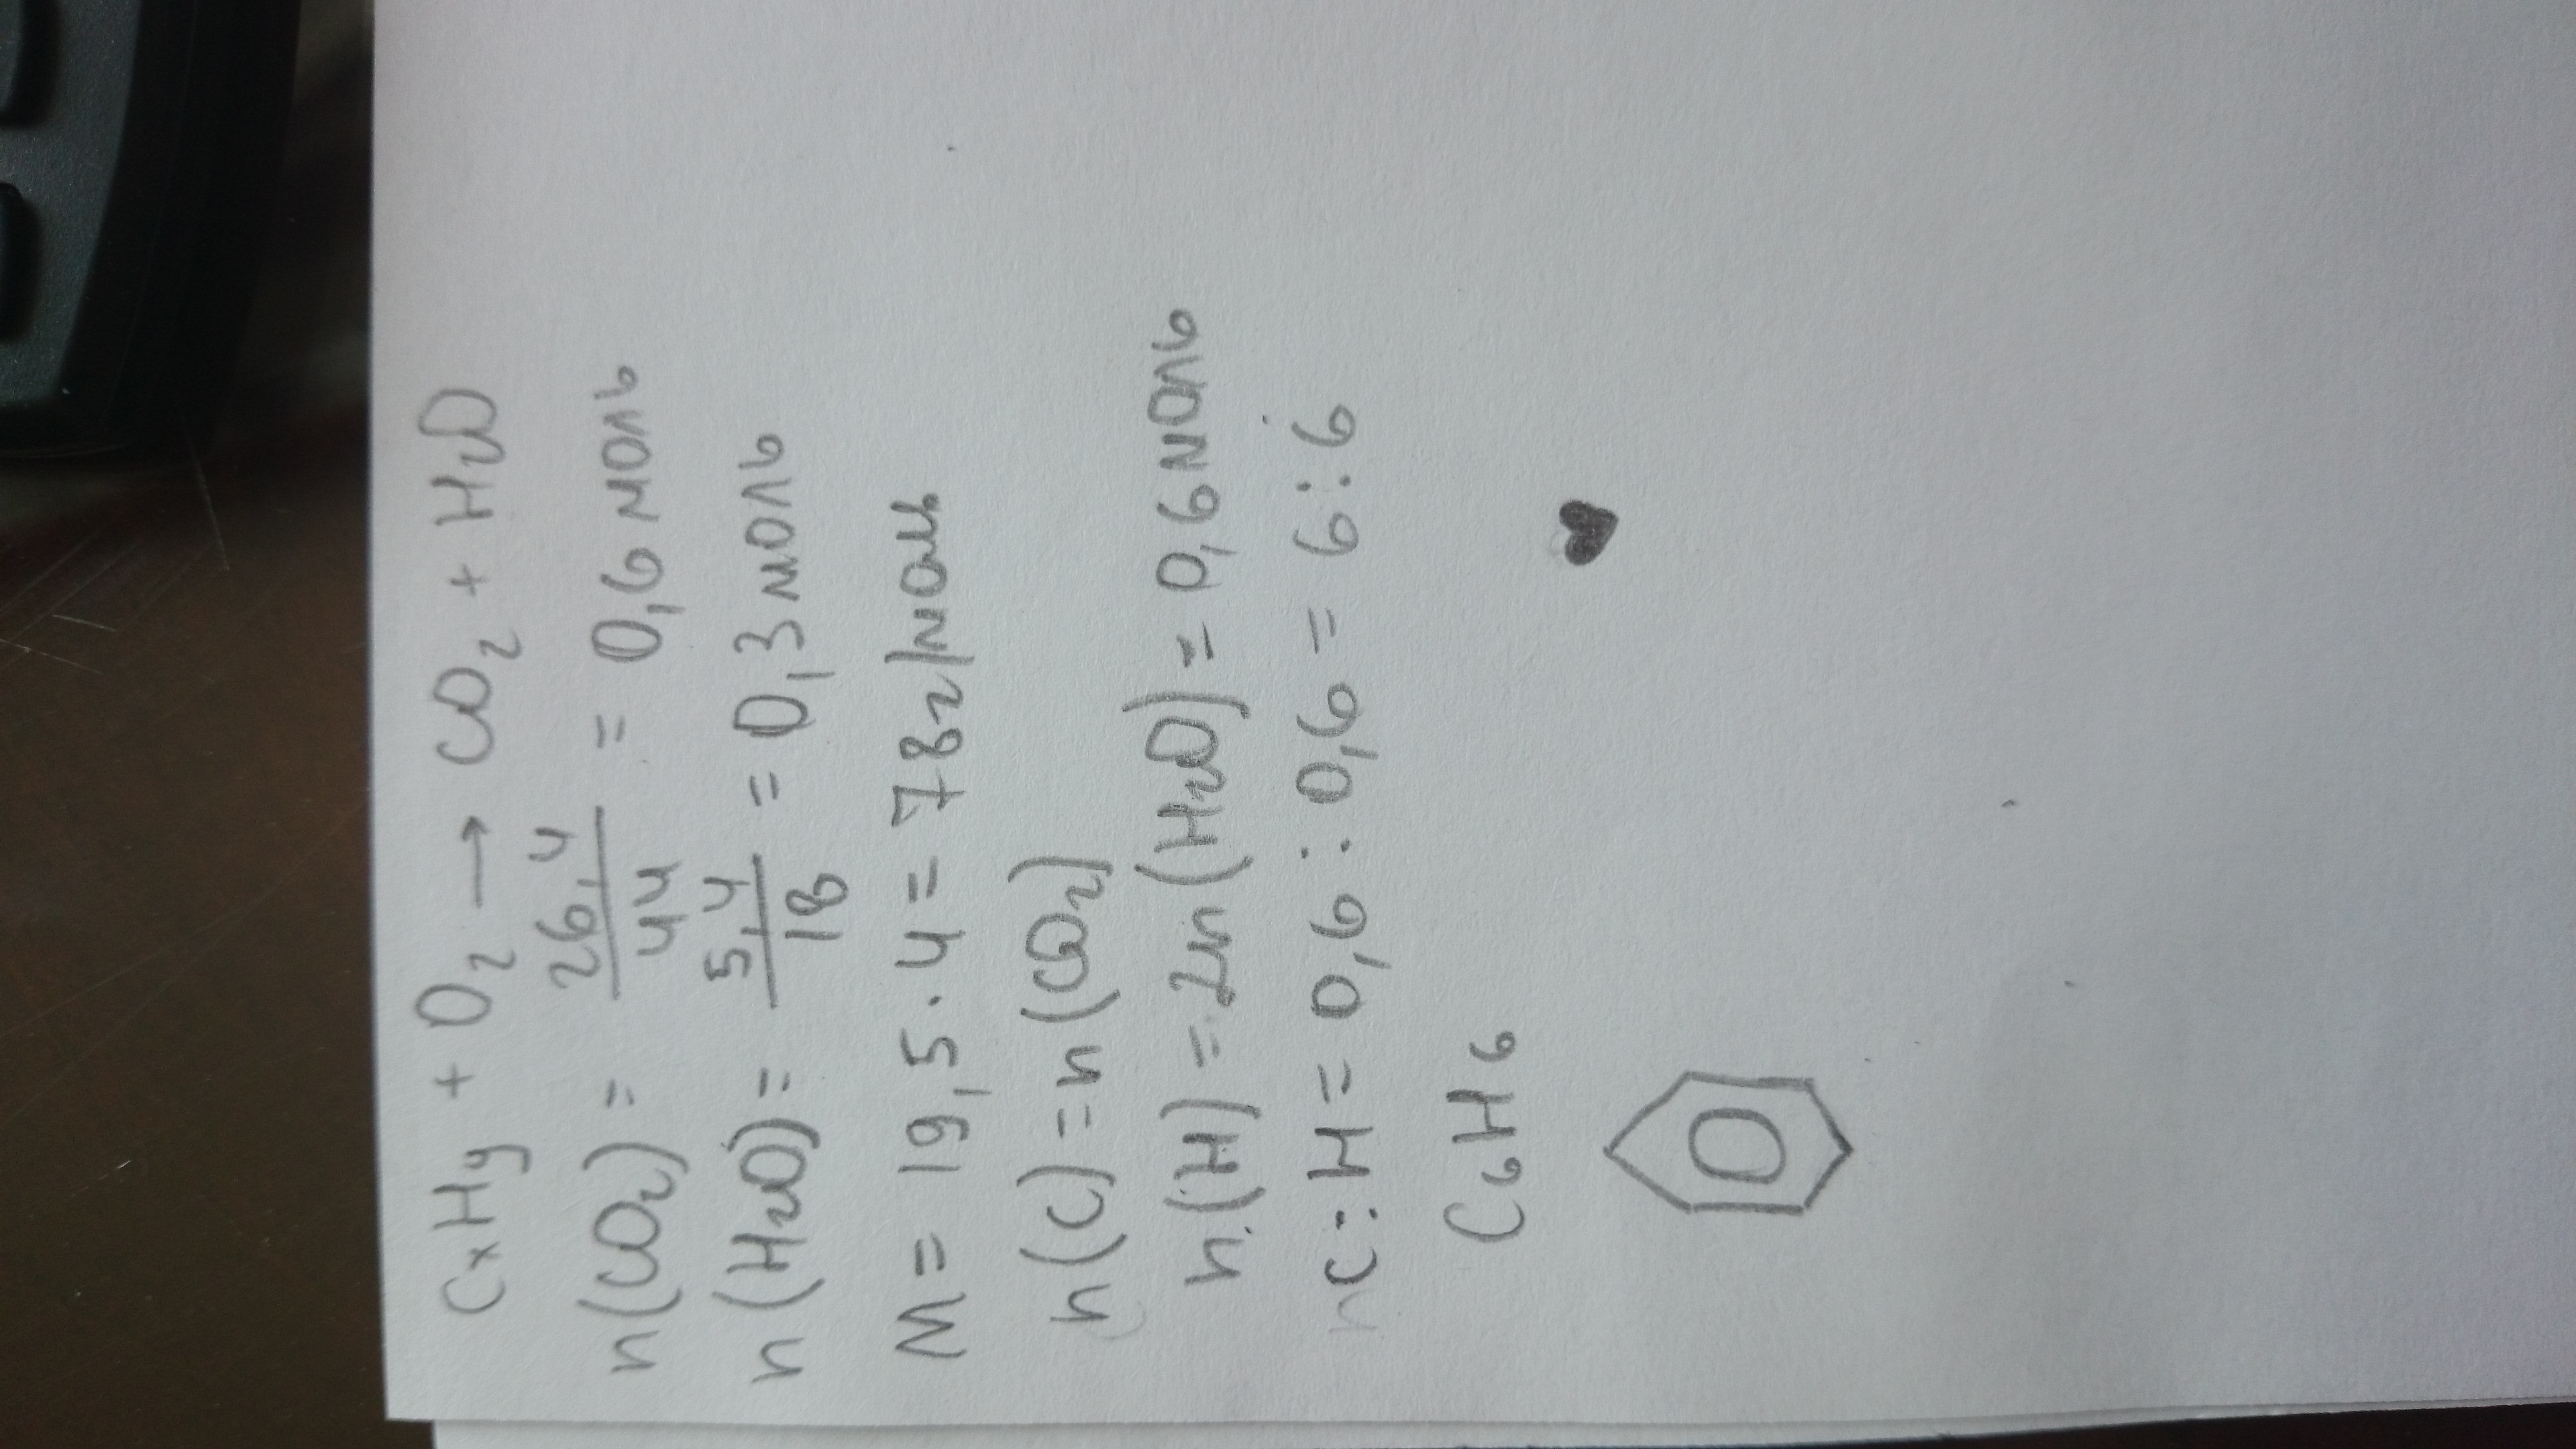 CxHy + O2 → CO2 + H2O
n(CO2) = 26,4/44 = 0,6 моль
n(H2O) = 5,4/18 = 0,3 моль
M = 19,5 · 4 = 78 г/моль
n(C) = n(CO2)
n(H) = 2n(H2O) = 0,6 моль
nC:H = 0,6 : 0,6 = 6:6
C6H6